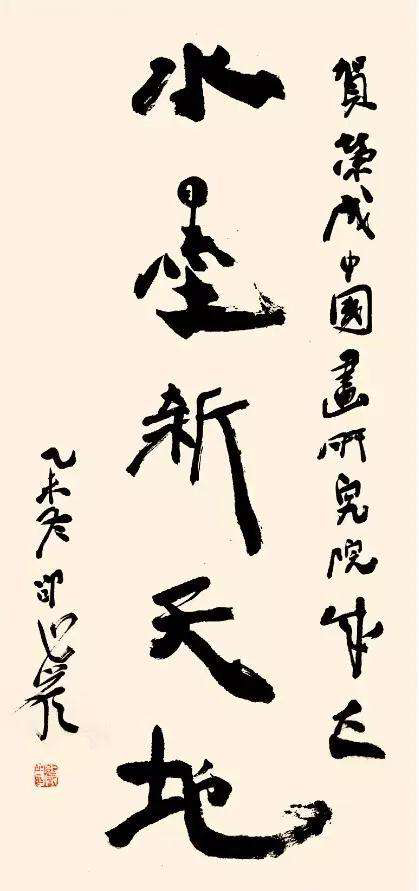 賀榮成中國畫研究院成立
水墨新天地
乙未冬 邵